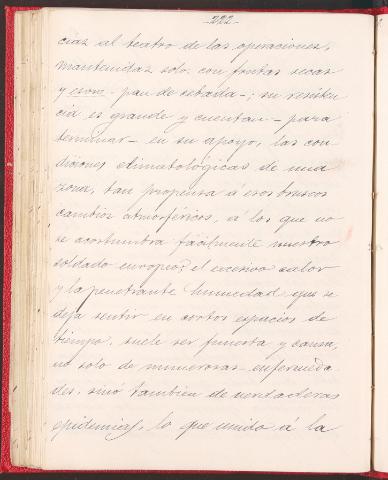 -222-
cías al teatro de las operaciones,
mantenidas solo con frutas secas
y - pan de cebada -; su resisten
cia es grande y cuentan - para
terminar - en su apoyo, las con
diciones climatológicas de una
zona, tan propensa á esos bruscos
cambios atmosféricos, á los que no
se acostumbra facilmente nuestro
soldado europeo; el excesivo calor
y la penetrante humedad que se
deja sentir en cortos espacios de
tiempo, suele ser funesta y causa,
no solo de numerosas enfermeda
des, sinó tambien de verdaderas
epidemias, lo que unido á la